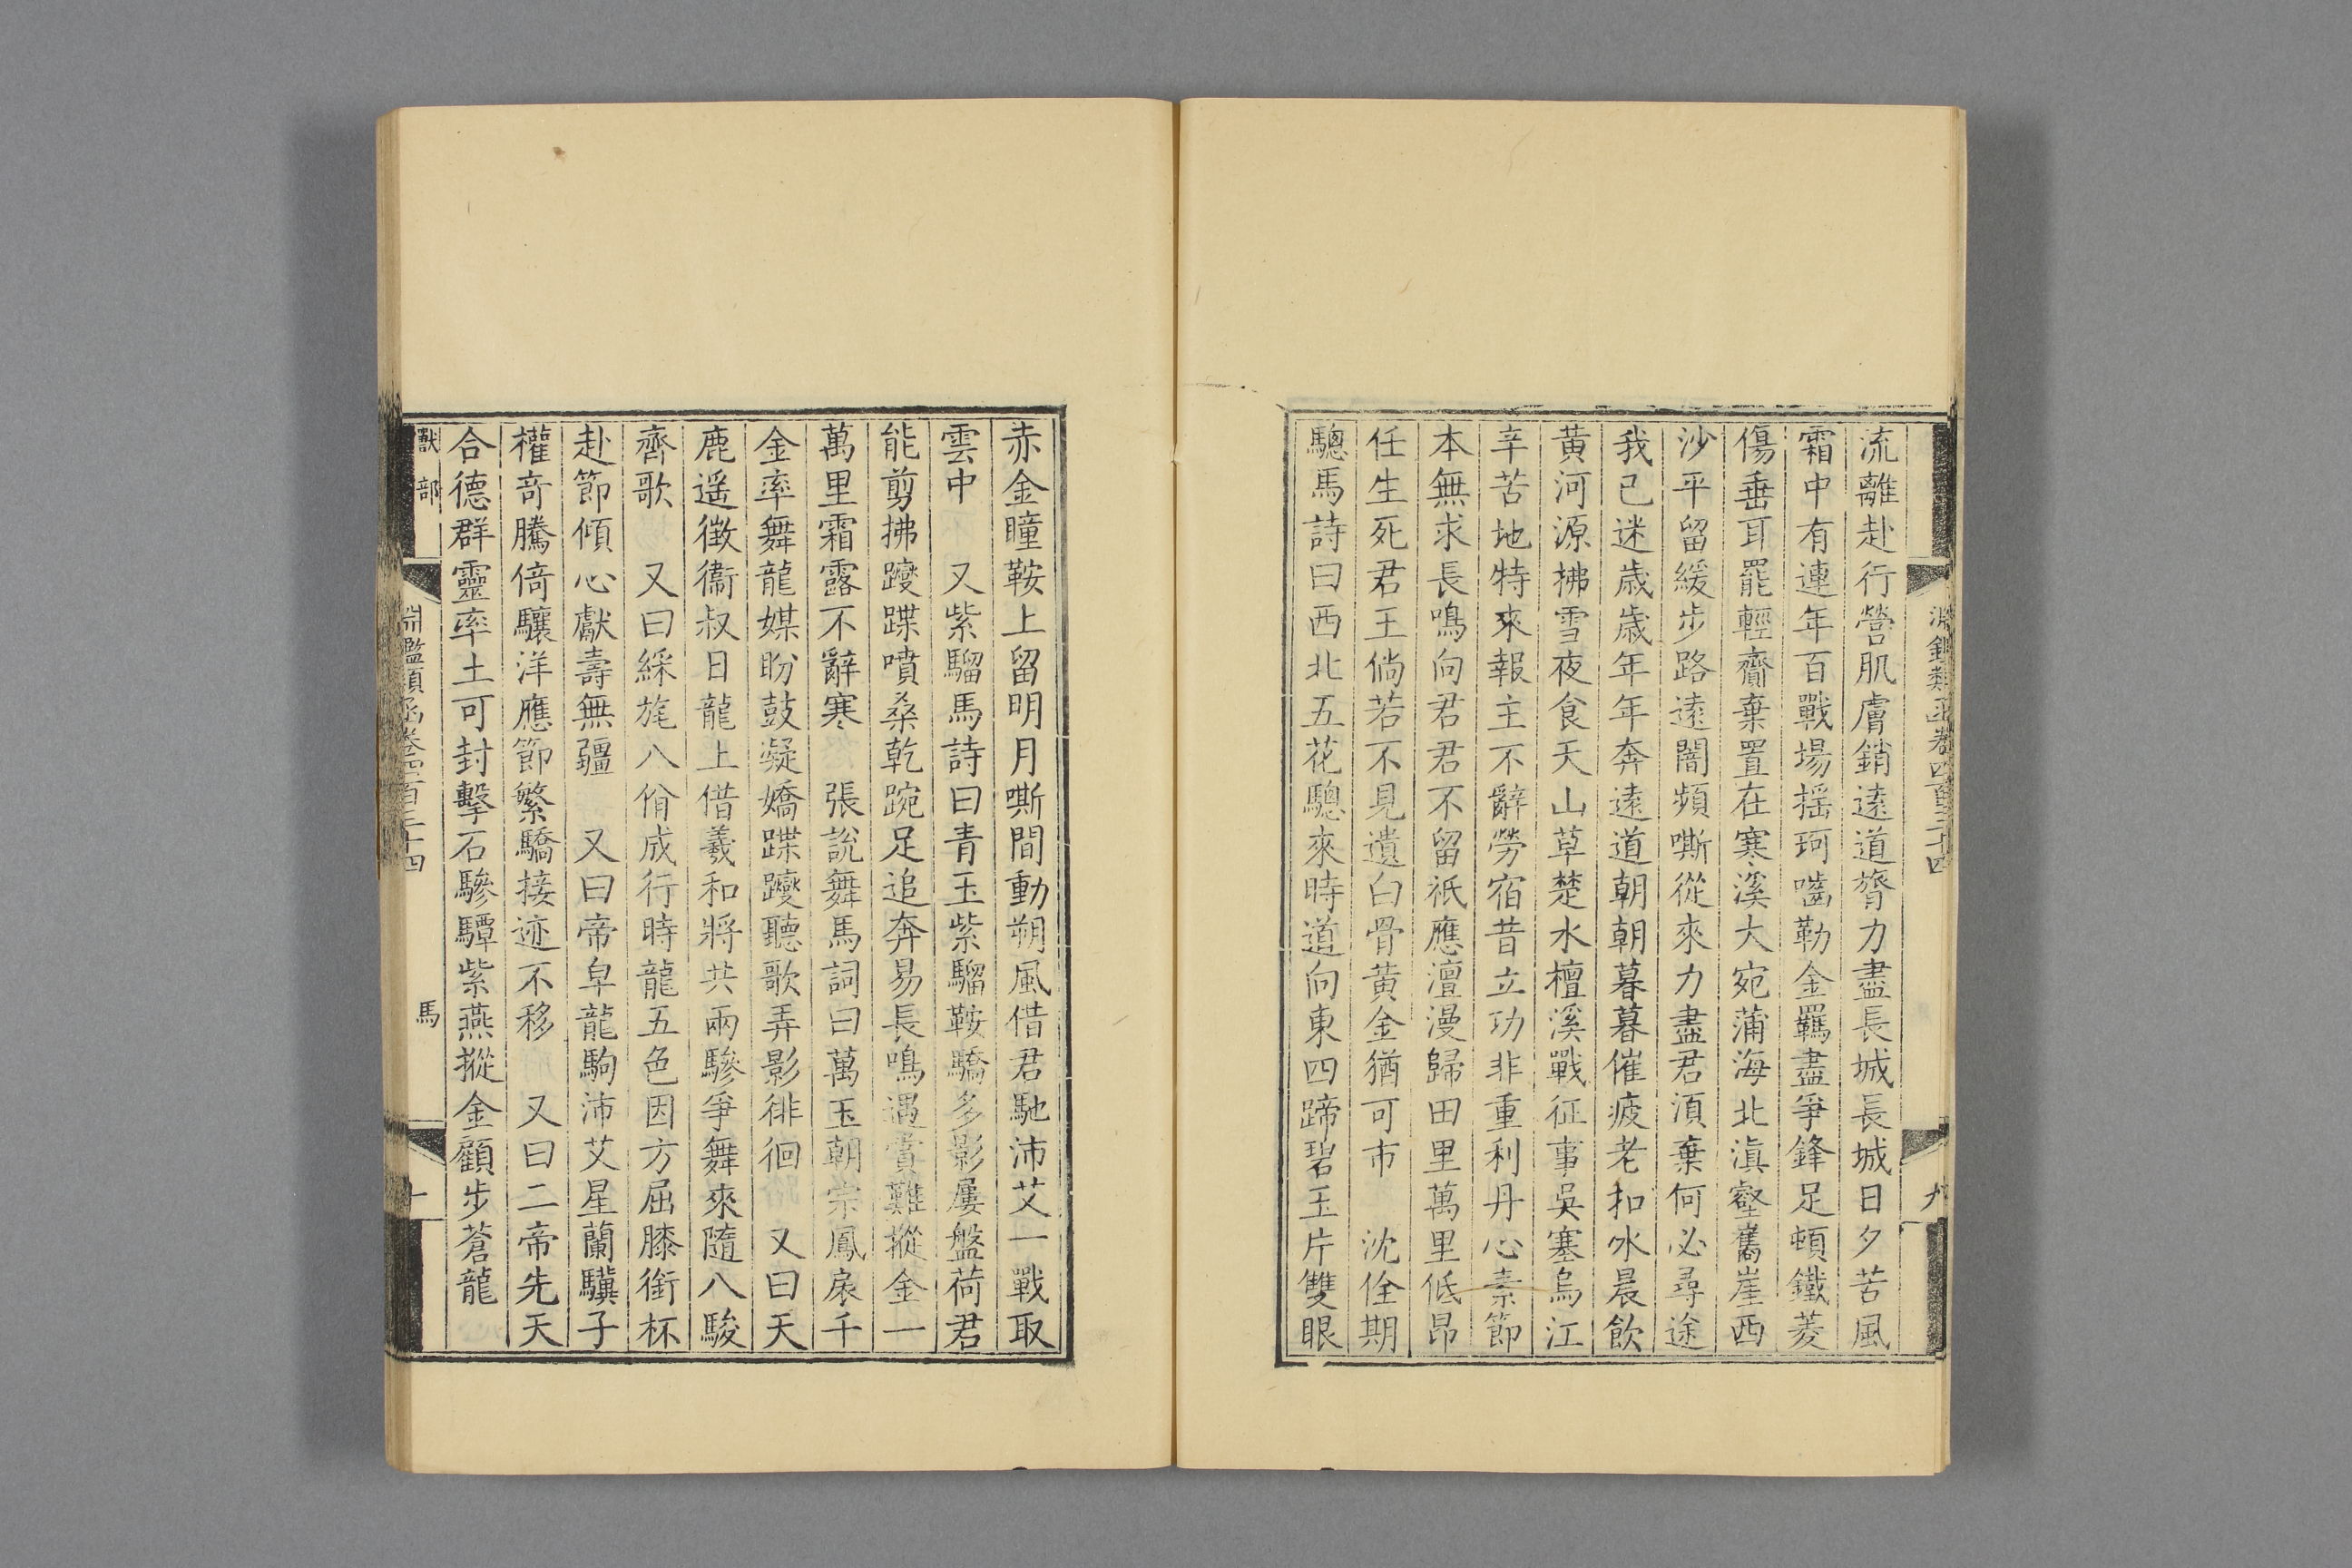 淵鑑類函卷四百三十四
九
流離赴行營肌膚銷遠道膂力盡長城長城日夕苦風
霜中有連年百戰場揺珂嚙勒金羈盡爭鋒足頓鐵菱
傷垂耳罷輕齎棄置在寒溪大宛蒲海北滇壑舊崖西
沙平留緩步路遠闇頻嘶從來力盡君湏棄何必尋途
我已迷歲歲年年奔遠道朝朝暮暮催疲老扣氷晨飲
黃河源拂雪夜食天山草楚水檀溪戰征事吳塞烏江
辛苦地特來報主不辭勞宿昔立功非重利丹心素節
本無求長鳴向君君不留祇應澶漫歸田里萬里低昂
任生死君王倘若不見遺白骨黃金猶可市　沈佺期
驄馬詩曰西北五花驄來時道向東四蹄碧玉片雙眼
赤金瞳鞍上留明月嘶間動朔風借君馳沛艾一戰取
雲中　又紫騮馬詩曰青玉紫騮鞍驕多影屢盤荷君
能剪拂躞蹀噴桑乾踠足追奔易長鳴遇賞難摐金一
萬里霜露不辭寒　張說舞馬詞曰萬玉朝宗鳳扆千
金率舞龍媒盼鼓凝嬌蹀躞聽歌弄影徘徊　又曰天
鹿遥徵衞叔日龍上借羲和將共兩驂爭舞來隨八駿
齊歌　又曰綵旄八佾成行時龍五色因方屈膝銜杯
赴節傾心獻壽無疆　又曰帝皁龍駒沛艾星蘭驥子
權竒騰倚驤洋應節繁驕接迹不移　又曰二帝先天
合德群靈率土可封擊石驂驔紫燕摐金顧步蒼龍
獸部
淵鑑類函卷四百三十四
馬
十